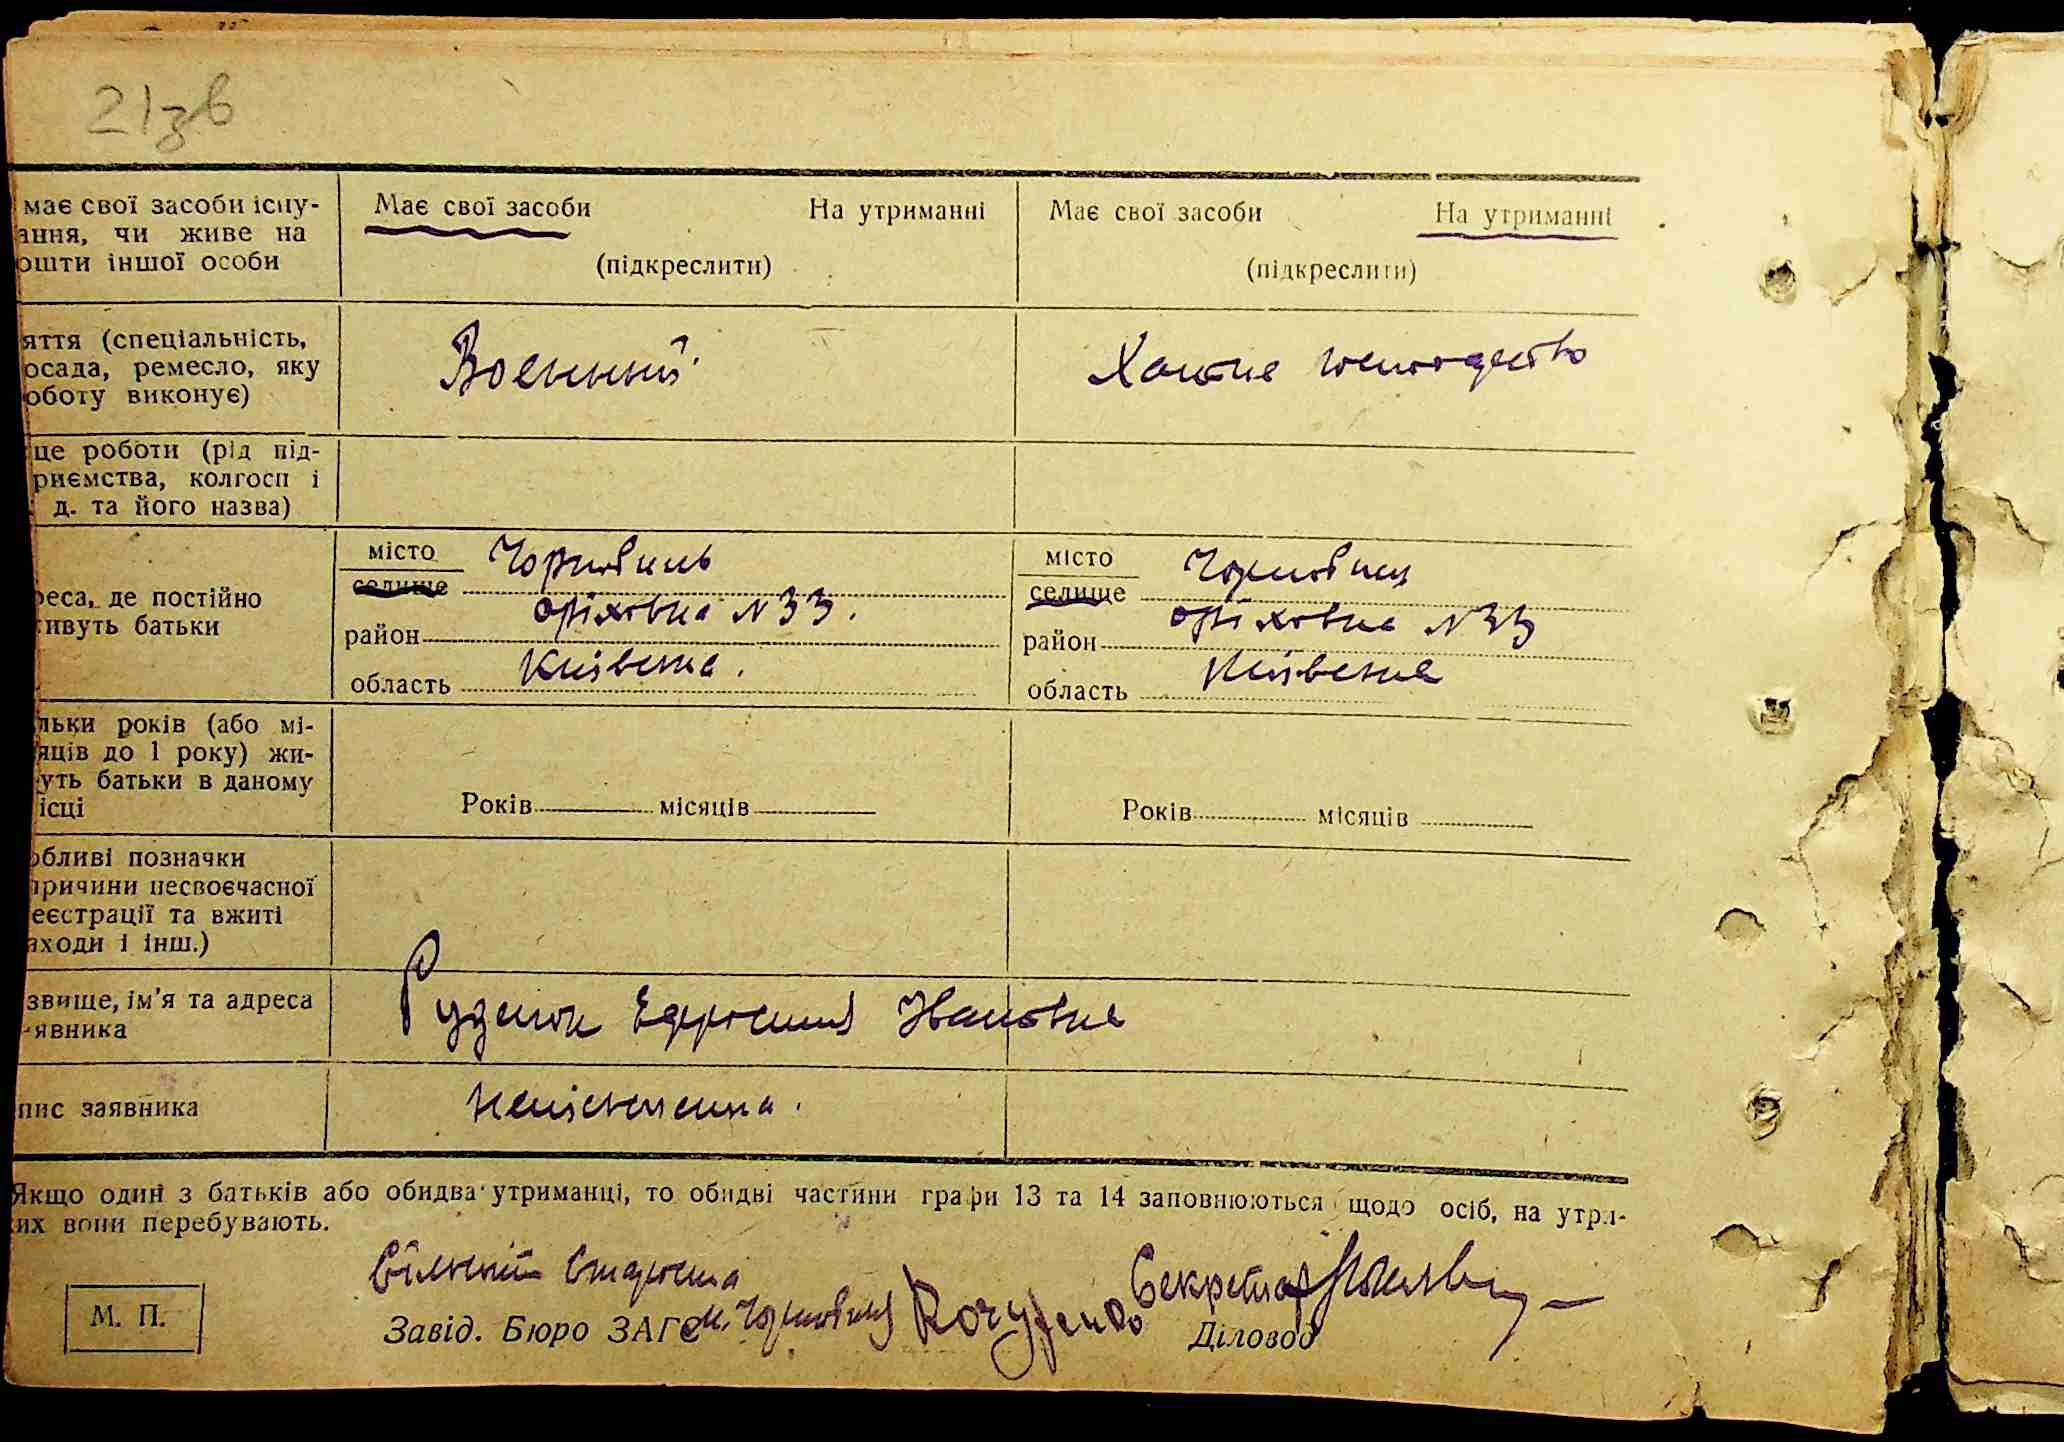 21зв
має свої засоби існу-
ання, чи живе на
ошти іншої особи
Має свої засоби На утриманні
(підкреслити)
Має свої засоби На утриманні
(підкреслити)
яття (спеціальність,
осада, ремесло, яку
оботу виконує)
Военный
Хатне
це роботи (рід під-
риємства, колгосп і
д. та його назва)
реса, де постійно
ивуть батьки
місто
селище
Чорнобиль
Оріховка N 33.
район
Київська.
область
місто
селище
Чорнобиль
Оріховка N 33
район
Київська
область
льки років (або мі-
яців до 1 року) жи-
уть батьки в даному
ісці
Років місяців
Років місяців
обливі позначки
причини несвоєчасної
еєстрації та вжиті
аходи і інш.)
звище, ім'я та адреса
явника
Руденок Ефросиния Ивановна
пис заявника
Неписьменна.
Якщо один з батьків або обидва утриманці, то обидві частини графи 13 та 14 заповнюються щодо осіб, на утри-
их вони перебувають.
М. П.
Староста Секретар
Завід. Бюро ЗАГС м. Чорнобиля
Діловод